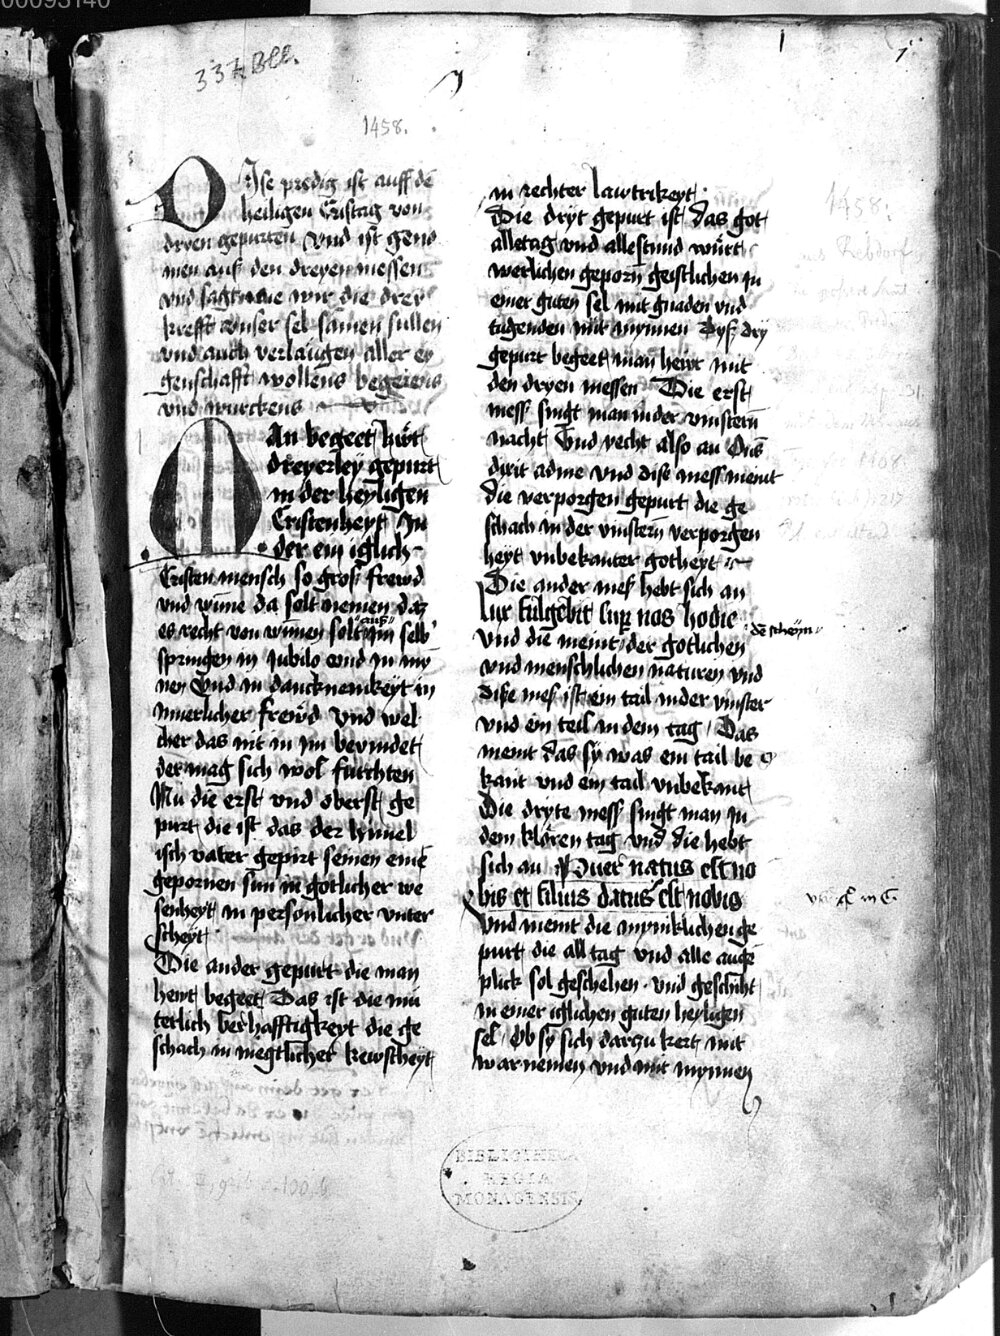 00093140
337 Bll.
1
1458.
DIse predig ist auff dē
heiligen Cristag von
dryen gepurten Vnd ist geno
men auß den dreyen messen
vnd sagt wie wir die drey
krefft vnser sel samen sullen
vnd auch verlaugen aller ey
genschafft wollens begerens
vnd wurckens
MAn begeet hewt
dreyerley gepurt
in der heyligen
Cristenheyt In
der ein iglich
Cristen mensch so groß frewd
vnd wune da solt nemen daz
es recht von wunen solt auß im selb
springen in Jubilo vnd in my
nen Vnd in dancknemikeyt in
innerlicher frewd Vnd wel
cher das nit in im bevindet
der mag sich wol furchten
Nu die erst vnd oberst ge
purt die ist das der hymel
isch vater gepirt seinen einē
gepornen sun in gotlicher we
senheyt in personlicher vnter
scheyt
Die ander gepurt die man
hewt begeet Das ist die mu
terlich berhafftigkeyt die ge
schach in megtlicher kewscheyt
in rechter lawtrikeyt
Die dryt gepurt ist das got
alletag vnd allestund würt
werlichen geporn geistlichen in
einer guten sel mit gnaden vnd
tugenden mit mynnen Dyß dry
gepurt begeet man hewt mit
den dryen messen Die erst
mess singt man in der vinstern
nacht Vnd hebt also an Dns
dixit adme vnd dise mess meint
die verporgen gepurt die ge
schach in der vinstern verporgen
heyt vnbekanter gotheyt
Die ander meß hebt sich an
Lux fulgebit sup nos hodie
Vnd die meint dē scheyn der gotlichen
vnd menschlichen naturen vnd
diße meß ist ein tail in der vinster
vnd ein teil in dem tag Das
meint das sy was ein tail be
kant vnd ein tail vnbekant
Die dryte mess singt man in
dem kloren tag vnd die hebt
sich an Puer natus est no
bis et filius datus est nobis
Vnd meint die mynniklichen ge
purt die all tag vnd alle augē
plick sol geschehen vnd geschiht
in einer iglichen guten heyligen
sel Ob sy sich darzu kert mit
war nemen vnd mit mynnen
1458.
BIBLIOTHECA
REGIA
MONACENSIS